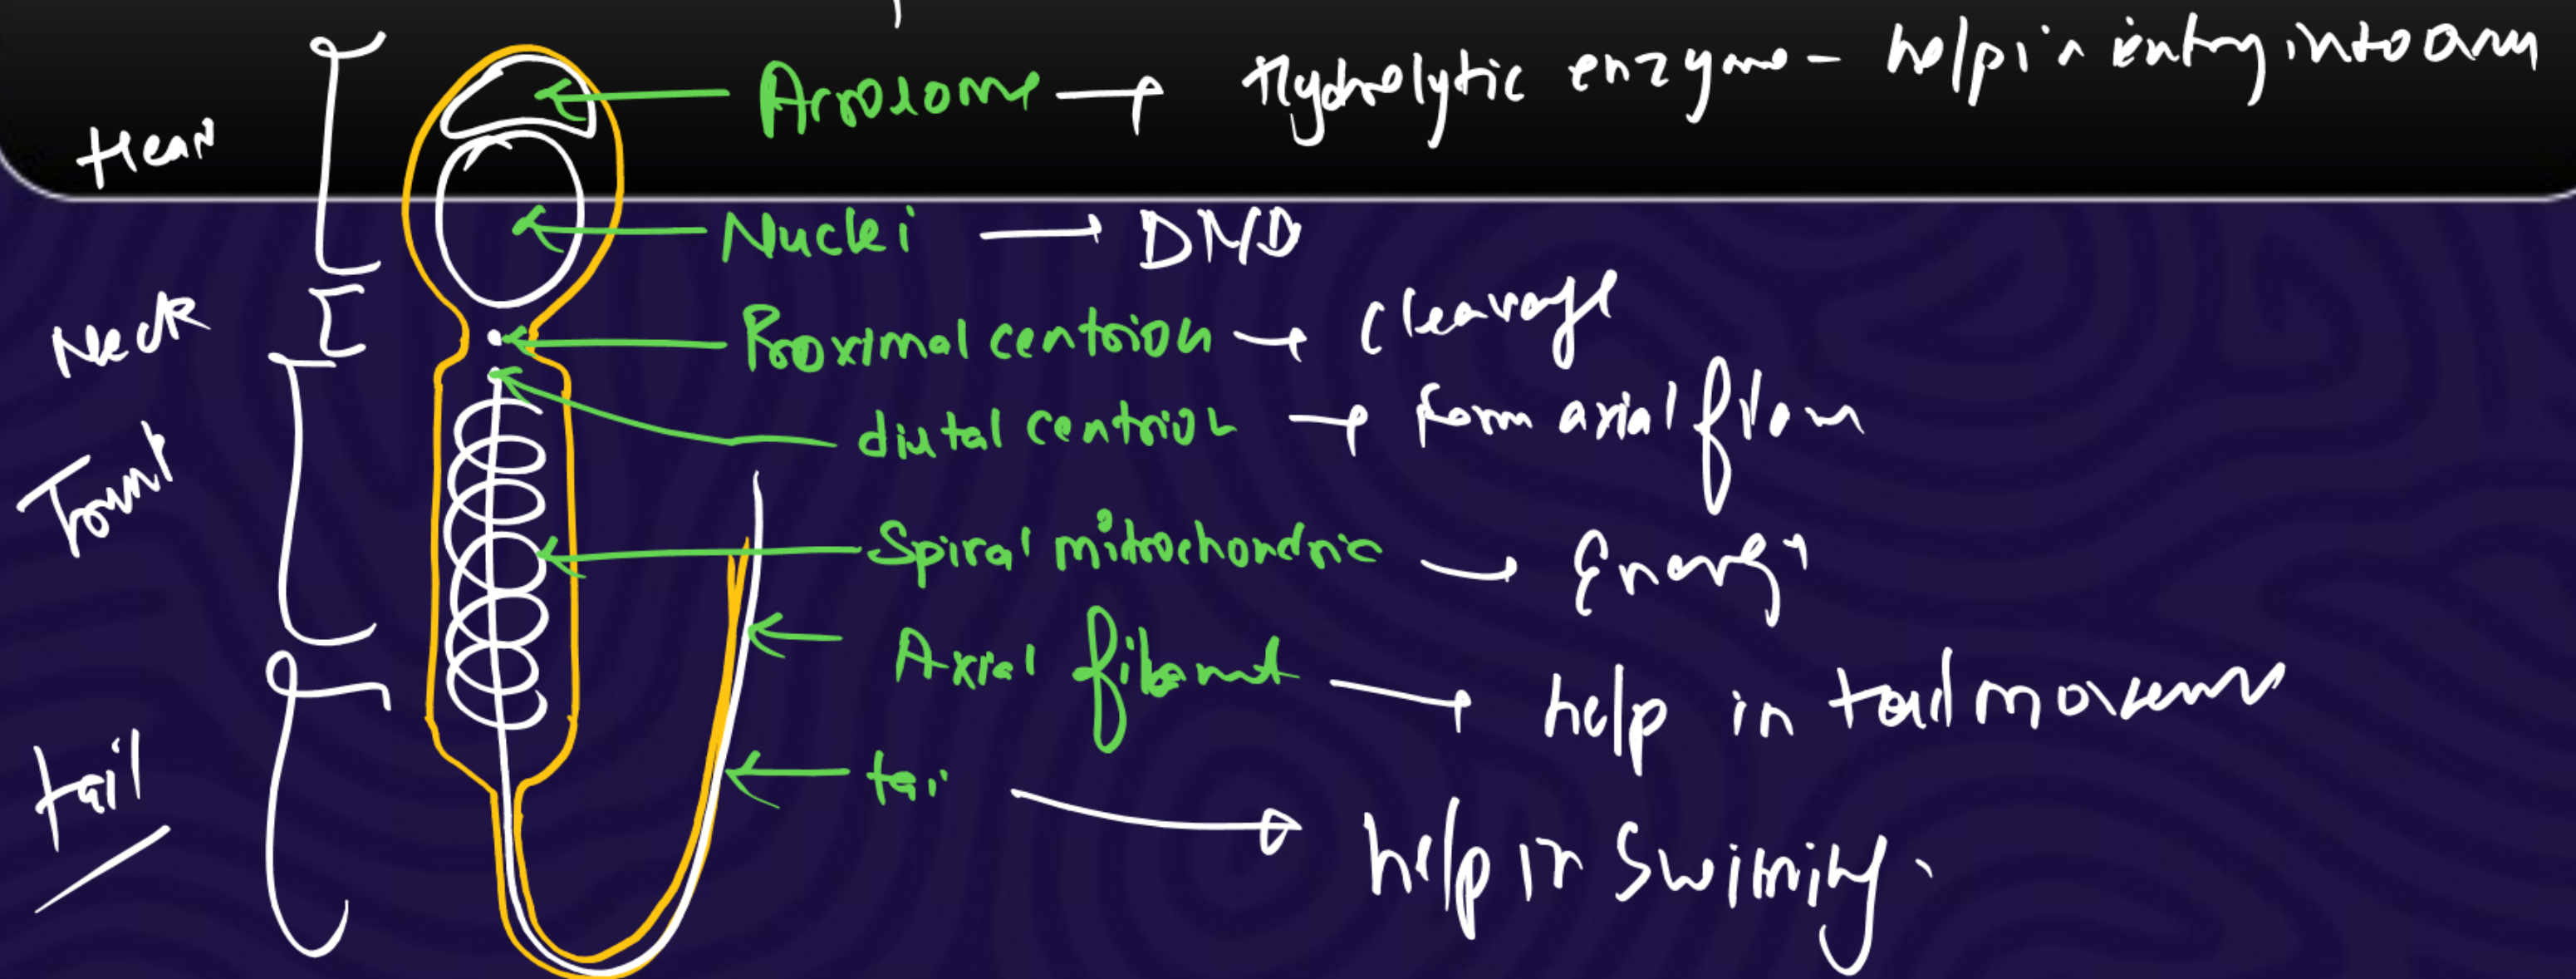 Head
Acrosome → Hydrolytic enzyme - help in entry into ovum
Nuclei → DNA
Neck
Proximal centriole → cleavage
distal centriole → form axial filam
Trunk
Spiral mitochondria → Energy
Axial filament → help in tail movement
tail
tai → help in Swiming.